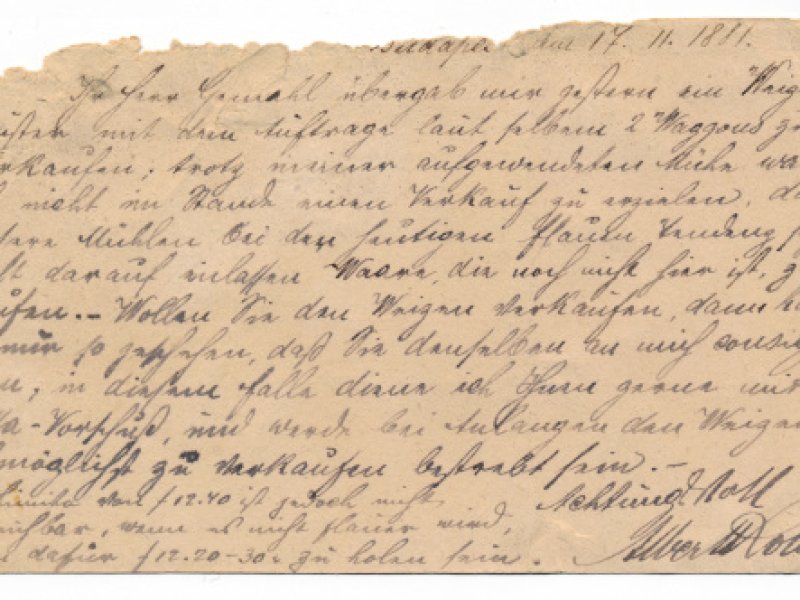 den 17. 11. 1881.
Ihr Herr Gemahl übergab mir gestern ein Weiz
mit dem Auftrage laut selbem 2 Waggons
rkaufen; trotz meiner aufgewendeten Mühe wa
nicht im Stande einen Verkauf zu erzielen, da
sere Mühlen bei der heutigen flauen Tendenz
darauf einlassen Waare, die noch nicht hier ist, z
ufen. – Wollen Sie den Weizen verkaufen, dann
nur so geschehen, daß Sie denselben an mich consig
n; in diesem Falle diene ich Ihnen gerne mit
a-Vorschuß, und werde bei Anlangen den Weizen
möglichst zu verkaufen bestrebt sein. –
Limito von f 12.40 ist jedoch nicht
ichbar, wenn es nicht flauer wird,
dafür f 12.20–30 zu holen sein.
Achtungsvoll
Albert